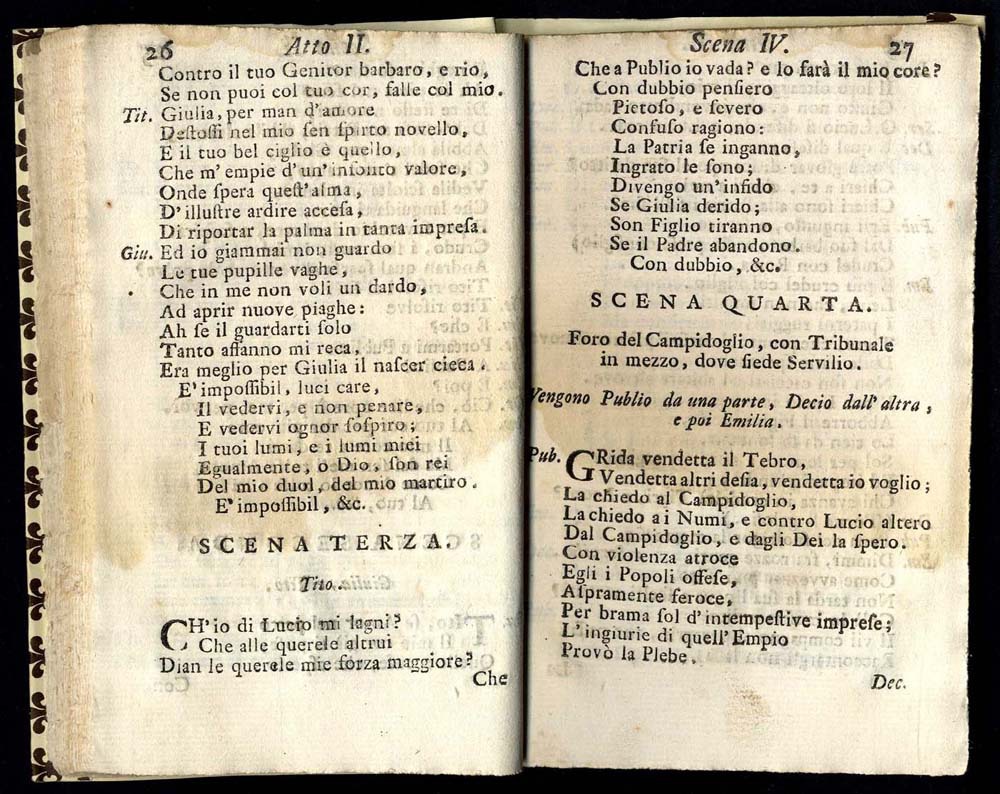 26 Atto II.
Contro il tuo Genitor barbaro, e rio,
Se non puoi col tuo cor, falle col mio.
Tit. Giulia, per man d'amore
Deſtoſſi nel mio ſen ſpirto novello,
E il tuo bel ciglio è quello,
Che m'empie d'un'inſonto valore,
Onde ſpera queſt'alma,
D'illuſtre ardire acceſa,
Di riportar la palma in tanta impreſa.
Giu. Ed io giammai non guardo
Le tue pupille vaghe,
Che in me non voli un dardo,
Ad aprir nuove piaghe:
Ah ſe il guardarti ſolo
Tanto affanno mi reca,
Era meglio per Giulia il naſcer cieca.
E' impoſſibil, luci care,
Il vedervi, e non penare,
E vedervi ognor ſoſpiro;
I tuoi lumi, e i lumi miei
Egualmente, o Dio, ſon rei
Del mio duol, del mio martiro.
E' impoſſibil, &c.
SCENA TERZA.
Tito.
CH'io di Lucio mi lagni?
Che alle querele altrui
Dian le querele mie forza maggiore?
Che
Scena IV. 27
Che a Publio io vada? e lo farà il mio core?
Con dubbio penſiero
Pietoſo, e ſevero
Confuſo ragiono:
La Patria ſe inganno,
Ingrato le ſono;
Divengo un'infido
Se Giulia derido;
Son Figlio tiranno
Se il Padre abandono.
Con dubbio, &c.
SCENA QUARTA.
Foro del Campidoglio, con Tribunale
in mezzo, dove ſiede Servilio.
Vengono Publio da una parte, Decio dall'altra,
e poi Emilia.
Pub. GRida vendetta il Tebro,
Vendetta altri deſia, vendetta io voglio;
La chiedo al Campidoglio,
La chiedo a i Numi, e contro Lucio altero
Dal Campidoglio, e dagli Dei la ſpero.
Con violenza atroce
Egli i Popoli offeſe,
Aſpramente feroce,
Per brama ſol d'intempeſtive impreſe;
L'ingiurie di quell'Empio
Provò la Plebe.
Dec.